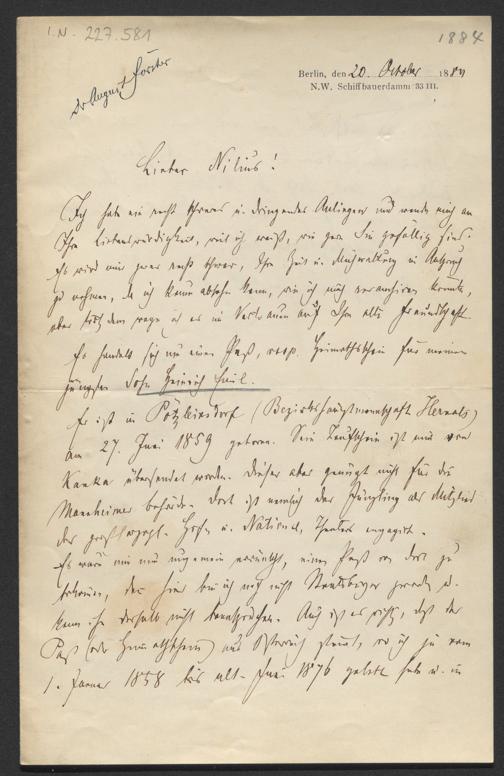 I.N. 227.581
1884
Dr August Förster
Berlin, den 20. October 1884
N.W. Schiffbauerdamm 33 III.
Lieber Nilius!
Ich habe ein recht schweres u. dringendes Anliegen und wende mich an
Ihre Liebenswürdigkeit, weil ich weiß, wie gern Sie gefällig sind.
Es wird mir zwar recht schwer, Ihre Zeit u. Mühwaltung in Anspruch
zu nehmen, da ich kaum absehen kann, wie ich mich revanchiren könnte,
aber trotzdem wage ich es im Vertrauen auf Ihre alte Freundschaft.
Es handelt sich um einen Paß, resp. Heimathschein für meinen
jüngsten Sohn Heinrich Emil.
Er ist in Pötzleinsdorf (Bezirkshauptmannschaft Hernals)
am 27. Juni 1859 geboren. Sein Taufschein ist mir von
übersendet worden. Dieser aber genügt nicht für die
Mannheimer Behörde. Dort ist nemlich der Jüngling als Mitglied
des großherzogl. Hof- u. National-Theaters engagirt.
Es wäre mir nun ungemein erwünscht, einen Paß von dort zu
bekommen, denn hier bin ich noch nicht Staatsbürger geworden u.
kann ihn deshalb nicht beanspruchen. Auch ist es richtig, daß der
Paß (oder Heimathschein) aus Österreich stammt, wo ich ja vom
1. Januar 1858 bis ult. Juni 1876 gelebt habe u. in